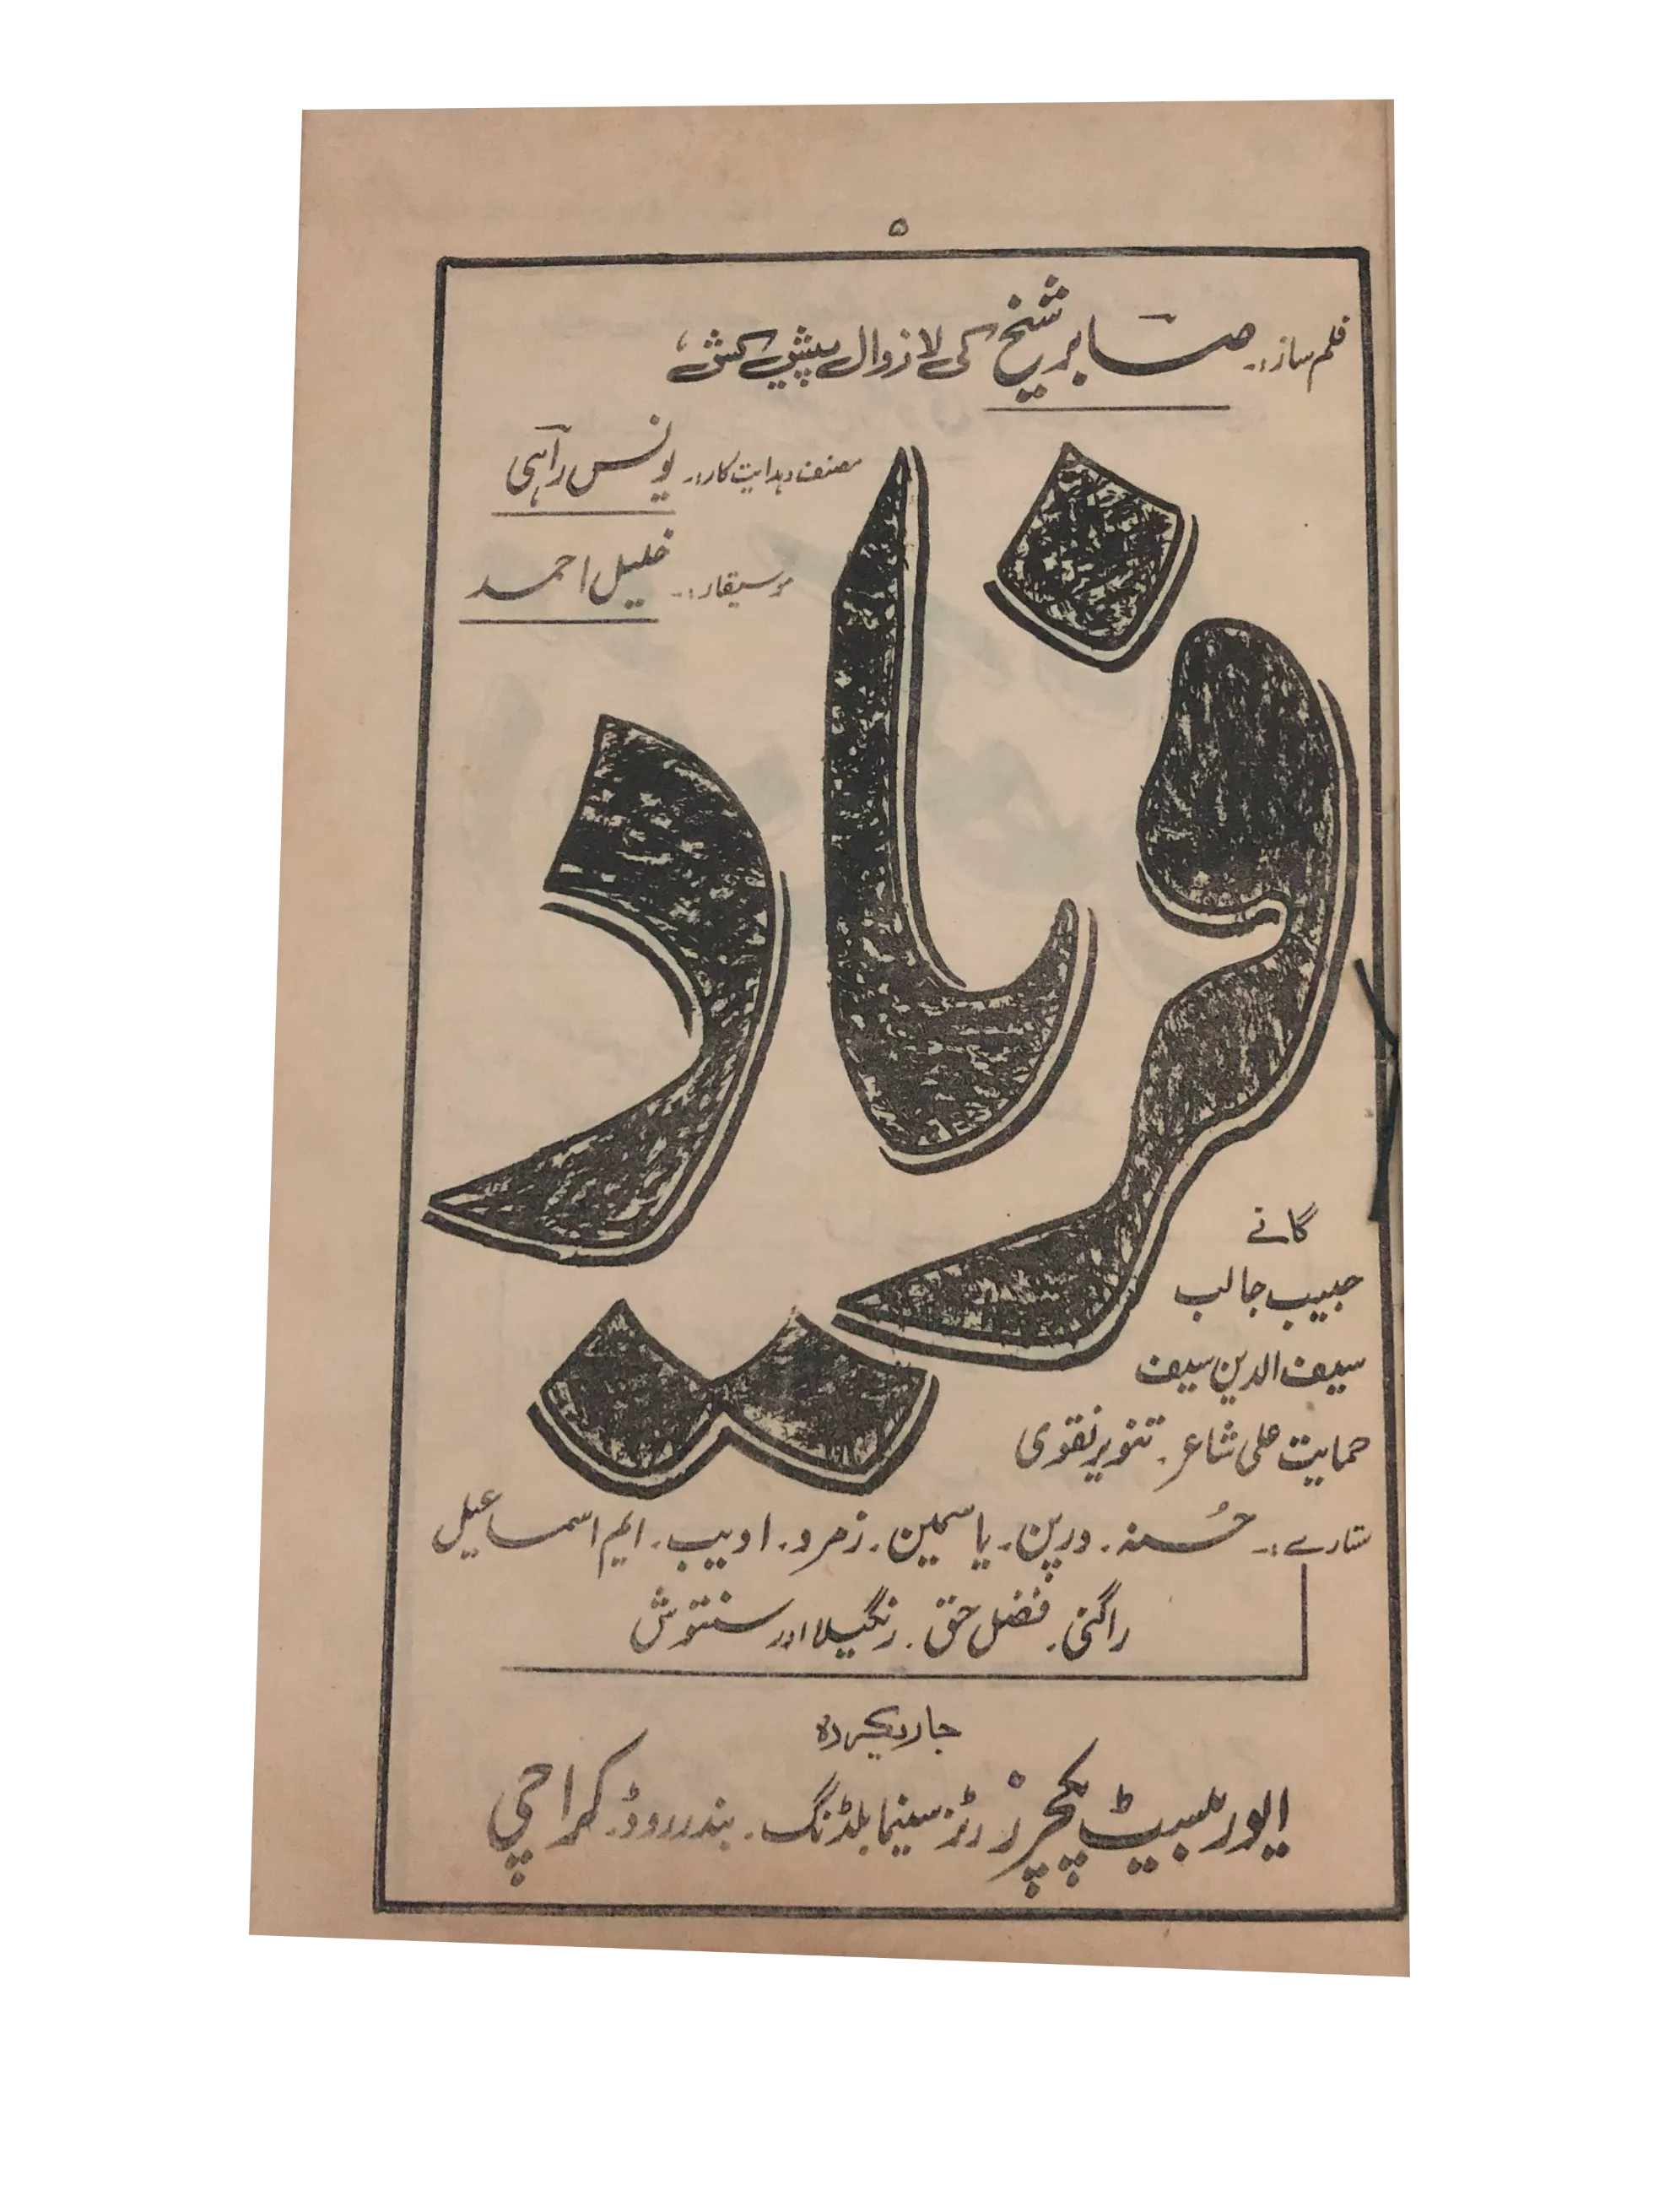 ۵
فلم ساز:۔ صابر شیخ کی لازوال پیش کش،
مصنف و ہدایت کار:۔ یونس راہی
موسیقار:۔ خلیل احمد
فریاد
گانے
حبیب جالب
سیف الدین سیف
حمایت علی شاعر۔ تنویر نقوی
ستارے:۔ حُسنہ۔ درپن۔ یاسمین۔ زمرد۔ ادیب۔ ایم اسماعیل
راگنی۔ فضل حق۔ رنگیلا اور سنتوش
جاریکردہ
ایور بیسٹ پکچرز رٹز سینما بلڈنگ۔ بندر روڈ۔ کراچی